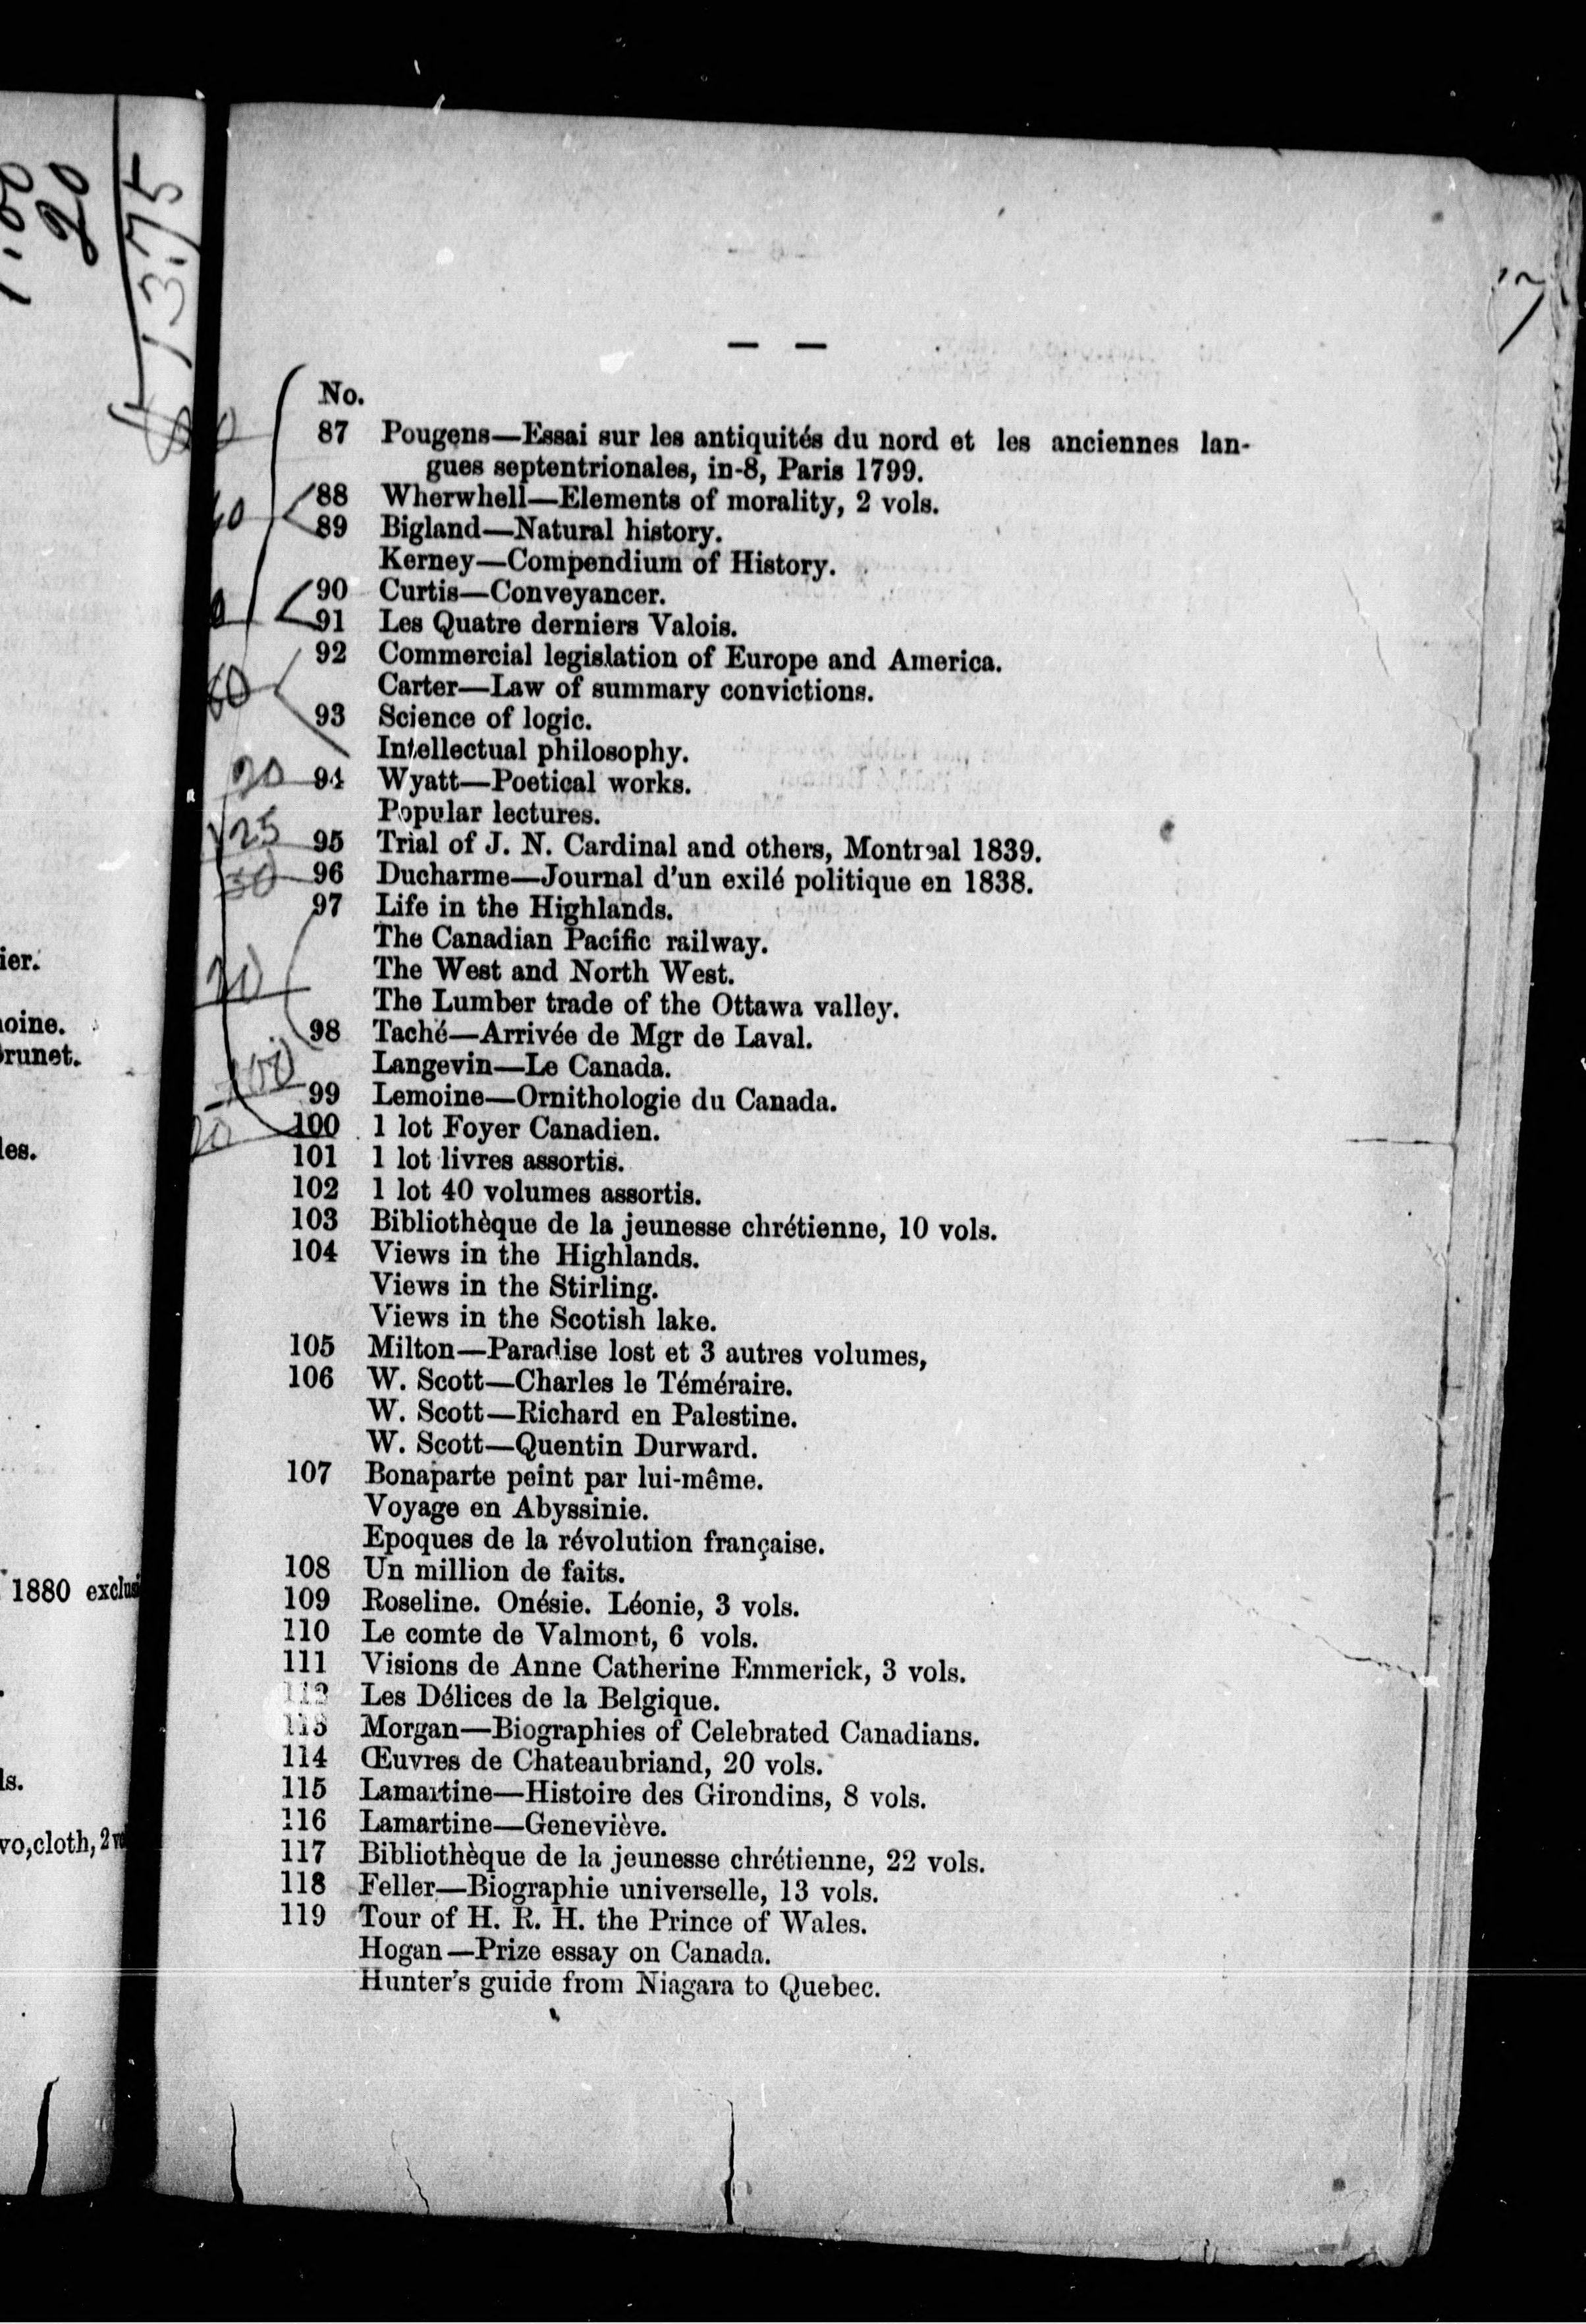 1.00
20
$ 13.75
ier.
oine.
runet.
les.
1880 exclusi
ls.
vo, cloth, 2 vo
7
— —
No.
87 Pougens—Essai sur les antiquités du nord et les anciennes lan-
gues septentrionales, in-8, Paris 1799.
88 Wherwhell—Elements of morality, 2 vols.
89 Bigland—Natural history.
Kerney—Compendium of History.
90 Curtis—Conveyancer.
91 Les Quatre derniers Valois.
92 Commercial legislation of Europe and America.
Carter—Law of summary convictions.
93 Science of logic.
Intellectual philosophy.
20 94 Wyatt—Poetical works.
Popular lectures.
25 95 Trial of J. N. Cardinal and others, Montreal 1839.
30 96 Ducharme—Journal d'un exilé politique en 1838.
97 Life in the Highlands.
The Canadian Pacific railway.
The West and North West.
The Lumber trade of the Ottawa valley.
98 Taché—Arrivée de Mgr de Laval.
Langevin—Le Canada.
99 Lemoine—Ornithologie du Canada.
100 1 lot Foyer Canadien.
101 1 lot livres assortis.
102 1 lot 40 volumes assortis.
103 Bibliothèque de la jeunesse chrétienne, 10 vols.
104 Views in the Highlands.
Views in the Stirling.
Views in the Scotish lake.
105 Milton—Paradise lost et 3 autres volumes,
106 W. Scott—Charles le Téméraire.
W. Scott—Richard en Palestine.
W. Scott—Quentin Durward.
107 Bonaparte peint par lui-même.
Voyage en Abyssinie.
Epoques de la révolution française.
108 Un million de faits.
109 Roseline. Onésie. Léonie, 3 vols.
110 Le comte de Valmont, 6 vols.
111 Visions de Anne Catherine Emmerick, 3 vols.
112 Les Délices de la Belgique.
113 Morgan—Biographies of Celebrated Canadians.
114 Œuvres de Chateaubriand, 20 vols.
115 Lamartine—Histoire des Girondins, 8 vols.
116 Lamartine—Geneviève.
117 Bibliothèque de la jeunesse chrétienne, 22 vols.
118 Feller—Biographie universelle, 13 vols.
119 Tour of H. R. H. the Prince of Wales.
Hogan—Prize essay on Canada.
Hunter's guide from Niagara to Quebec.